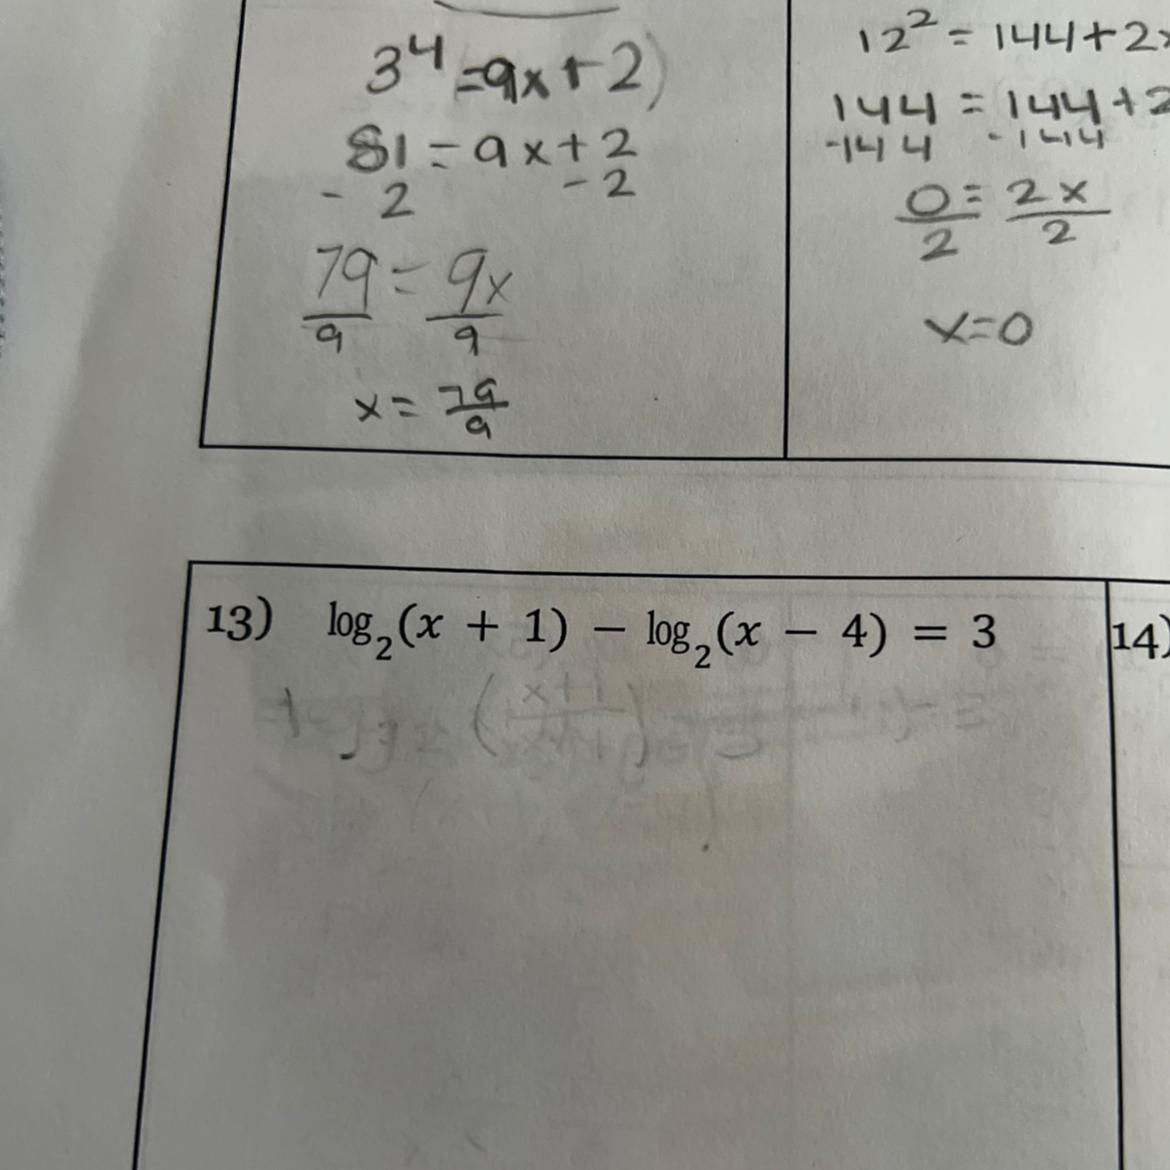 3⁴ = 9x + 2)
81 = 9x + 2
- 2 - 2
79 = 9x
9 9
x = 79/9
12² = 144 + 2x
144 = 144 + 2
-144 -144
0 = 2x
2 2
x = 0
13) log₂(x + 1) − log₂(x − 4) = 3
14)